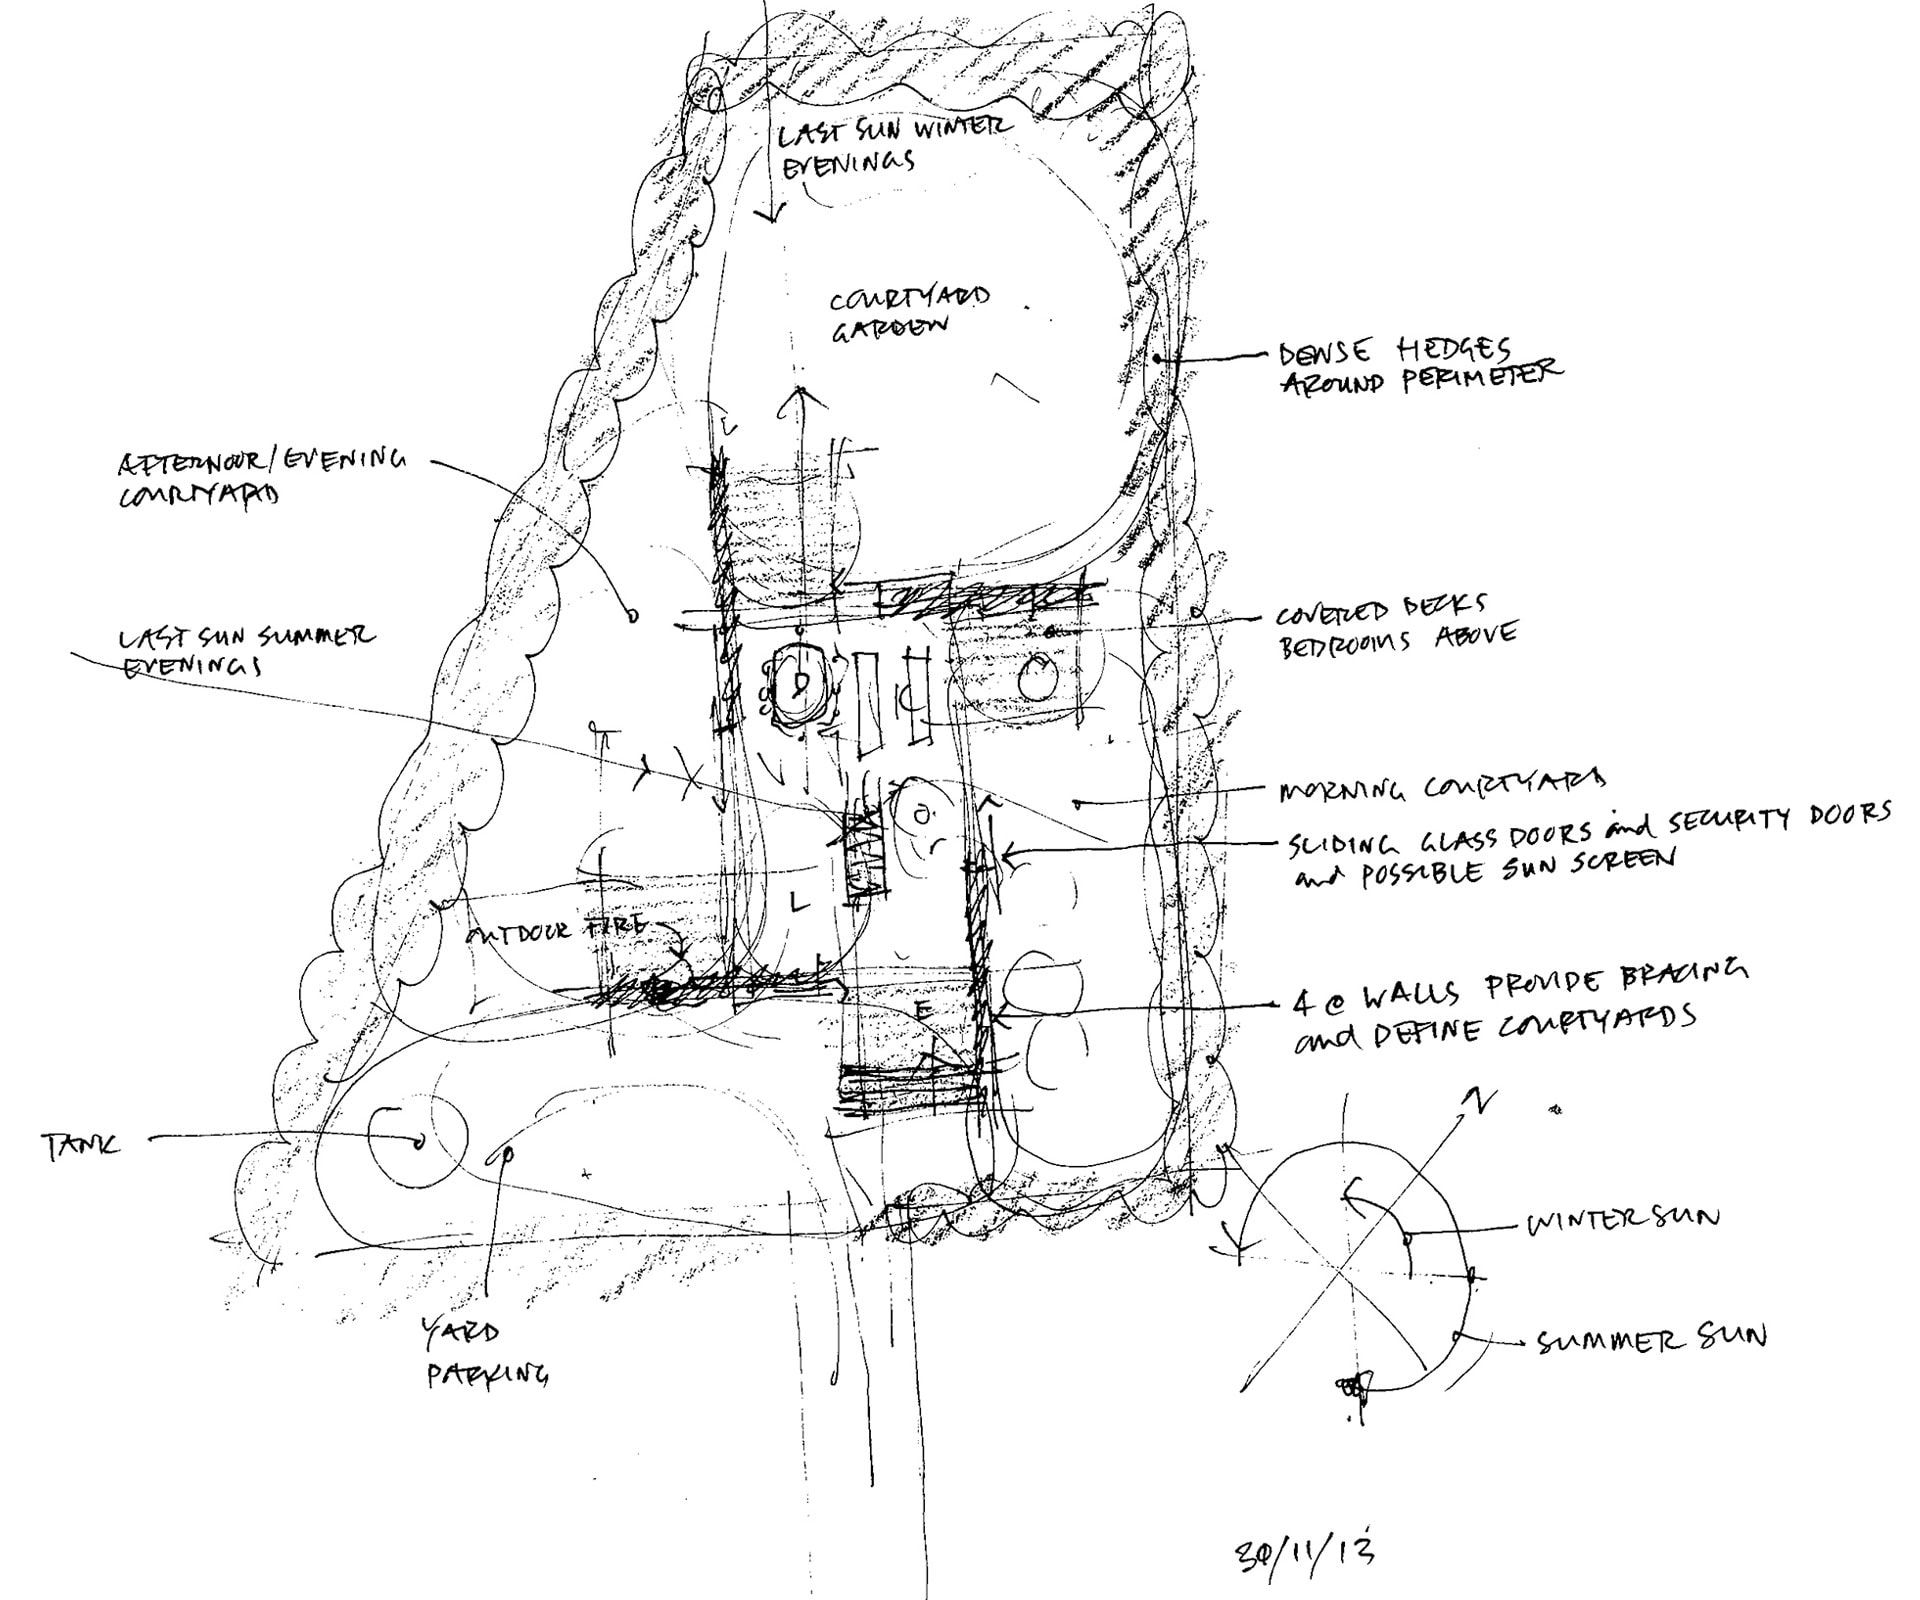 LAST SUN WINTER
EVENINGS
COURTYARD
GARDEN
DENSE HEDGES
AROUND PERIMETER
AFTERNOON/EVENING
COURTYARD
LAST SUN SUMMER
EVENINGS
COVERED DECKS
BEDROOMS ABOVE
D
MORNING COURTYARD
SLIDING GLASS DOORS and SECURITY DOORS
and POSSIBLE SUN SCREEN
L
OUTDOOR FIRE
E
4 @ WALLS PROVIDE BRACING
and DEFINE COURTYARDS
TANK
YARD
PARKING
N
WINTER SUN
SUMMER SUN
30/11/13